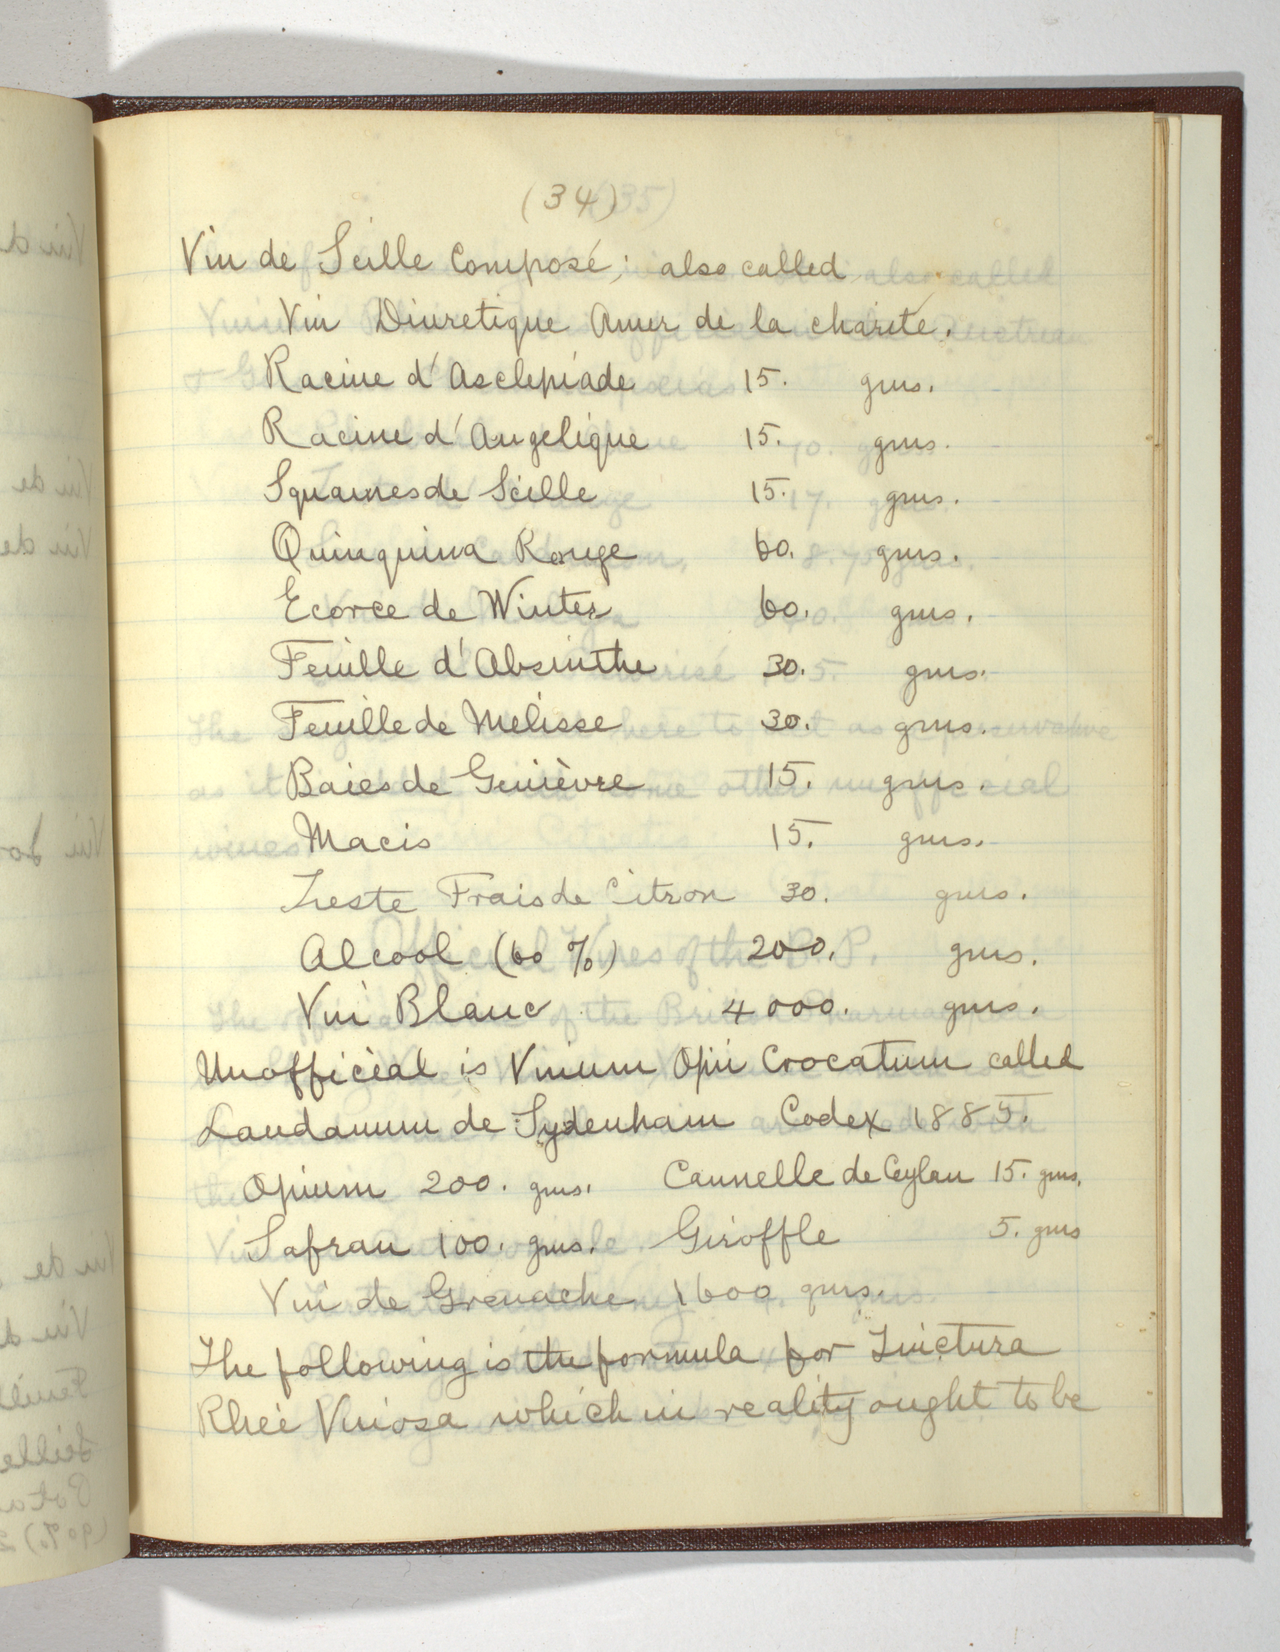 (34)
Vin de Scille Composé; also called
Vin Diuretique Amer de la charité.
Racine d'Asclepiade 15. gms.
Racine d'Angelique 15. gms.
Squames de Scille 15. gms.
Quinquina Rouge 60. gms.
Ecorce de Winter 60. gms.
Feuille d'Absinthe 30. gms.
Feuille de Melisse 30. gms.
Baies de Genièvre 15. gms.
Macis 15. gms.
Zeste Frais de Citron 30. gms.
Alcool (60 %) 200. gms.
Vin Blanc 4000. gms.
Unofficial is Vinum Opii Crocatum called
Laudanum de Sydenham Codex 1885.
Opium 200. gms. Cannelle de Ceylan 15. gms.
Safran 100. gms. Giroffle 5. gms
Vin de Grenache 1600 gms.
The following is the formula for Tinctura
Rheei Vinosa which in reality ought to be